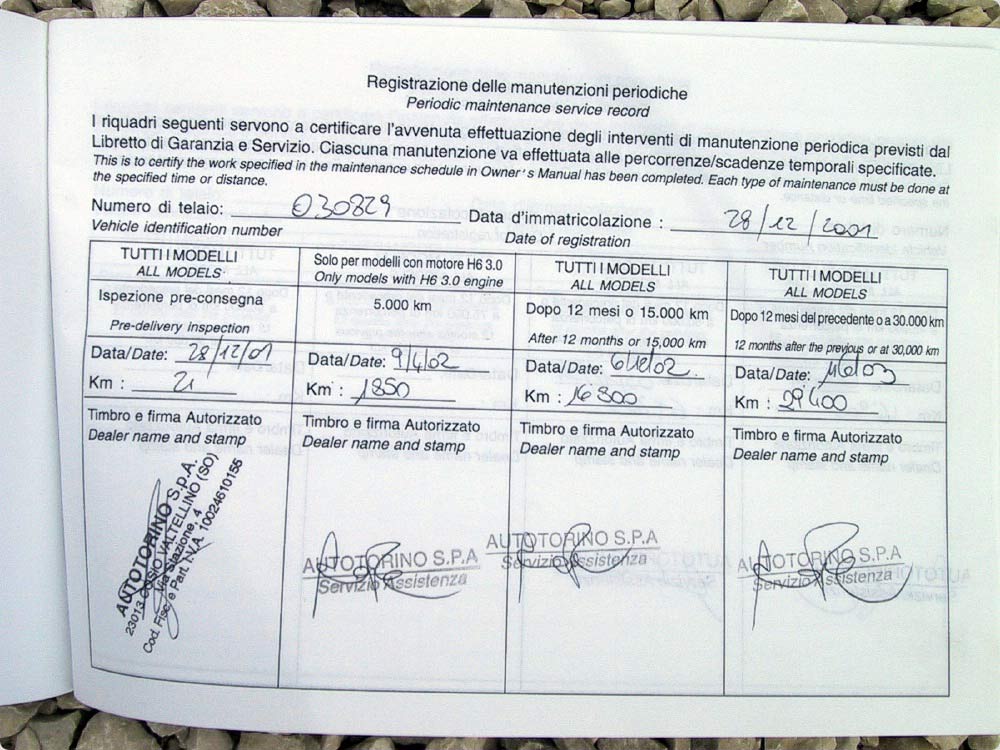 Registrazione delle manutenzioni periodiche
Periodic maintenance service record
I riquadri seguenti servono a certificare l'avvenuta effettuazione degli interventi di manutenzione periodica previsti dal
Libretto di Garanzia e Servizio. Ciascuna manutenzione va effettuata alle percorrenze/scadenze temporali specificate.
This is to certify the work specified in the maintenance schedule in Owner's Manual has been completed. Each type of maintenance must be done at
the specified time or distance.
Numero di telaio: 030829
Vehicle identification number
Data d'immatricolazione : 28/12/2001
Date of registration
TUTTI I MODELLI
ALL MODELS
Ispezione pre-consegna
Pre-delivery inspection
Data/Date: 28/12/01
Km : 21
Timbro e firma Autorizzato
Dealer name and stamp
AUTOTORINO S.p.A.
23013 COSIO VALTELLINO (SO)
Via Stazione, 4
Cod. Fisc. e Part. I.V.A. 10024610155
Solo per modelli con motore H6 3.0
Only models with H6 3.0 engine
5.000 km
Data/Date: 9/4/02
Km : 1850
Timbro e firma Autorizzato
Dealer name and stamp
AUTOTORINO S.P.A
Servizio Assistenza
TUTTI I MODELLI
ALL MODELS
Dopo 12 mesi o 15.000 km
After 12 months or 15,000 km
Data/Date:
Km : 16300
Timbro e firma Autorizzato
Dealer name and stamp
AUTOTORINO S.P.A
Servizio Assistenza
TUTTI I MODELLI
ALL MODELS
Dopo 12 mesi del precedente o a 30.000 km
12 months after the previous or at 30,000 km
Data/Date:
Km : 29400
Timbro e firma Autorizzato
Dealer name and stamp
AUTOTORINO S.P.A
Servizio Assistenza